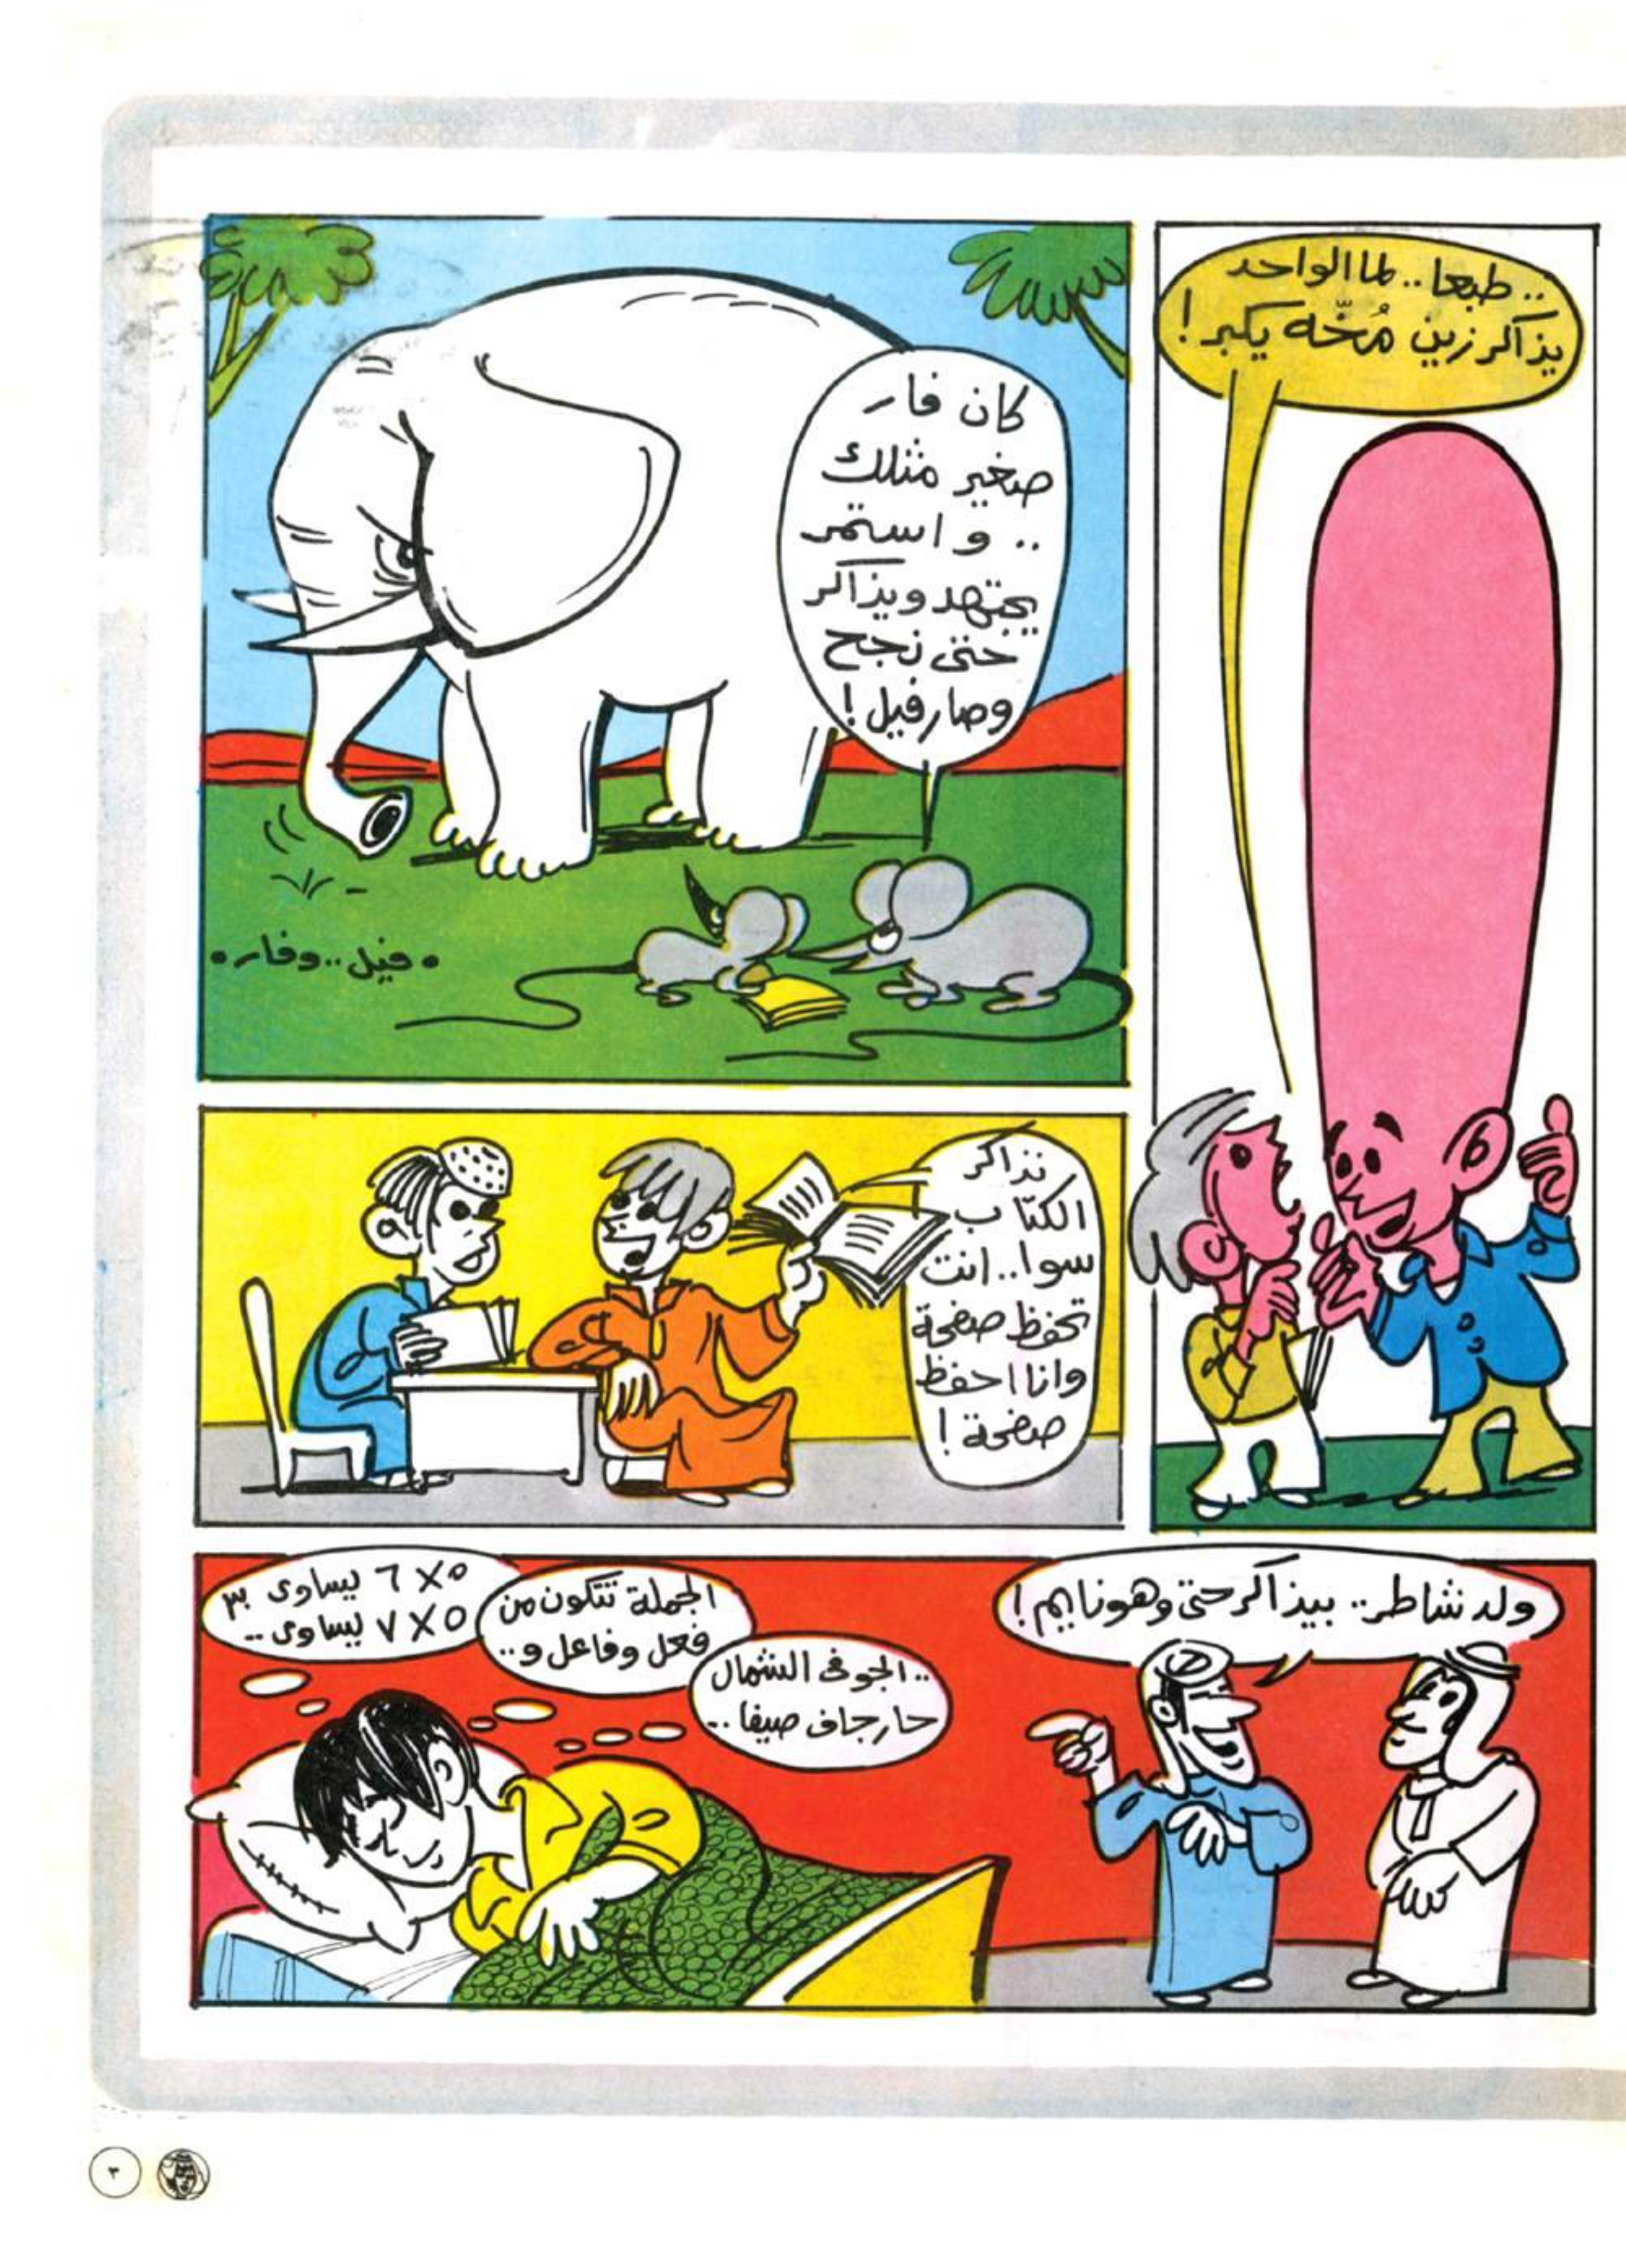 .. طبعا .. لما الواحد
يذاكر زين مُخّه يكبر !
كان فار
صغير مثلك
.. و استمر
يجتهد ويذاكر
حتى نجح
وصار فيل !
• فيل .. وفار •
نذاكر
الكتاب
سوا .. انت
تحفظ صفحة
وانا احفظ
صفحة !
ولد شاطر .. بيذاكر حتى وهو نايم !
.. الجو في الشمال
حار جاف صيفا ..
الجملة تتكون من
فعل وفاعل و ..
٥ × ٦ يساوى ٣٠
٥ × ٧ يساوى ..
٣